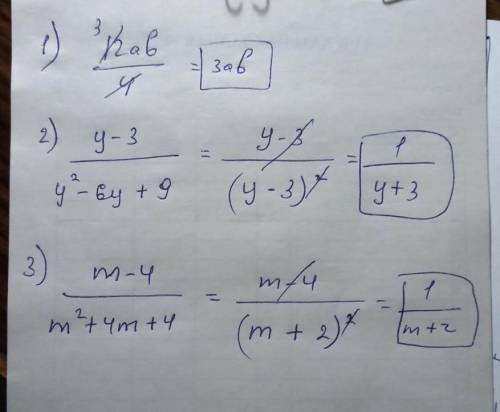 1) ³ 12ав/4 = 3ав
2) y-3 / y²-6y+9 = y-3 / (y-3)² = 1 / y+3
3) m-4 / m²+4m+4 = m-4 / (m+2)² = 1 / m+2